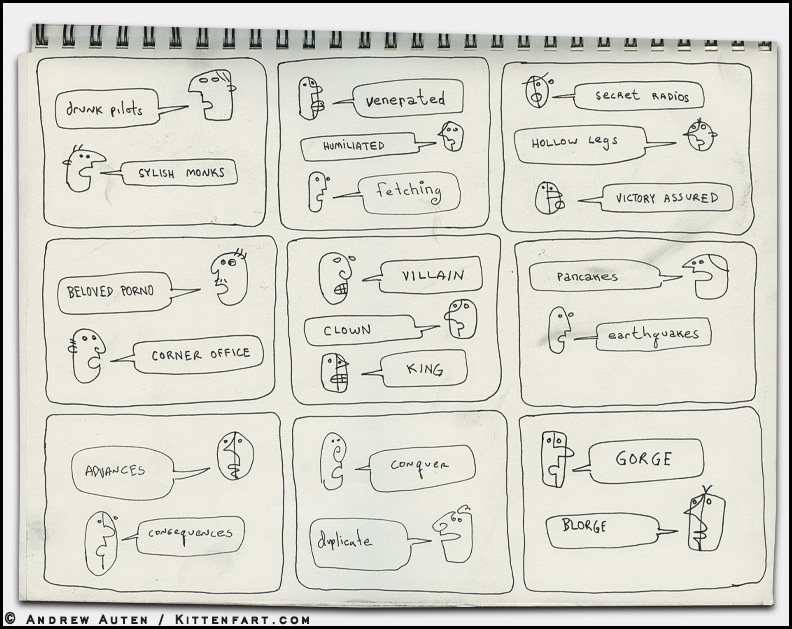 drunk pilots
SYLISH MONKS
venerated
HUMILIATED
fetching
SECRET RADIOS
HOLLOW Legs
VICTORY ASSURED
BELOVED PORNO
CORNER OFFICE
VILLAIN
CLOWN
KING
pancakes
earthquakes
ADVANCES
consequences
conquer
duplicate
GORGE
BLORGE
© ANDREW AUTEN / KITTENFART.COM